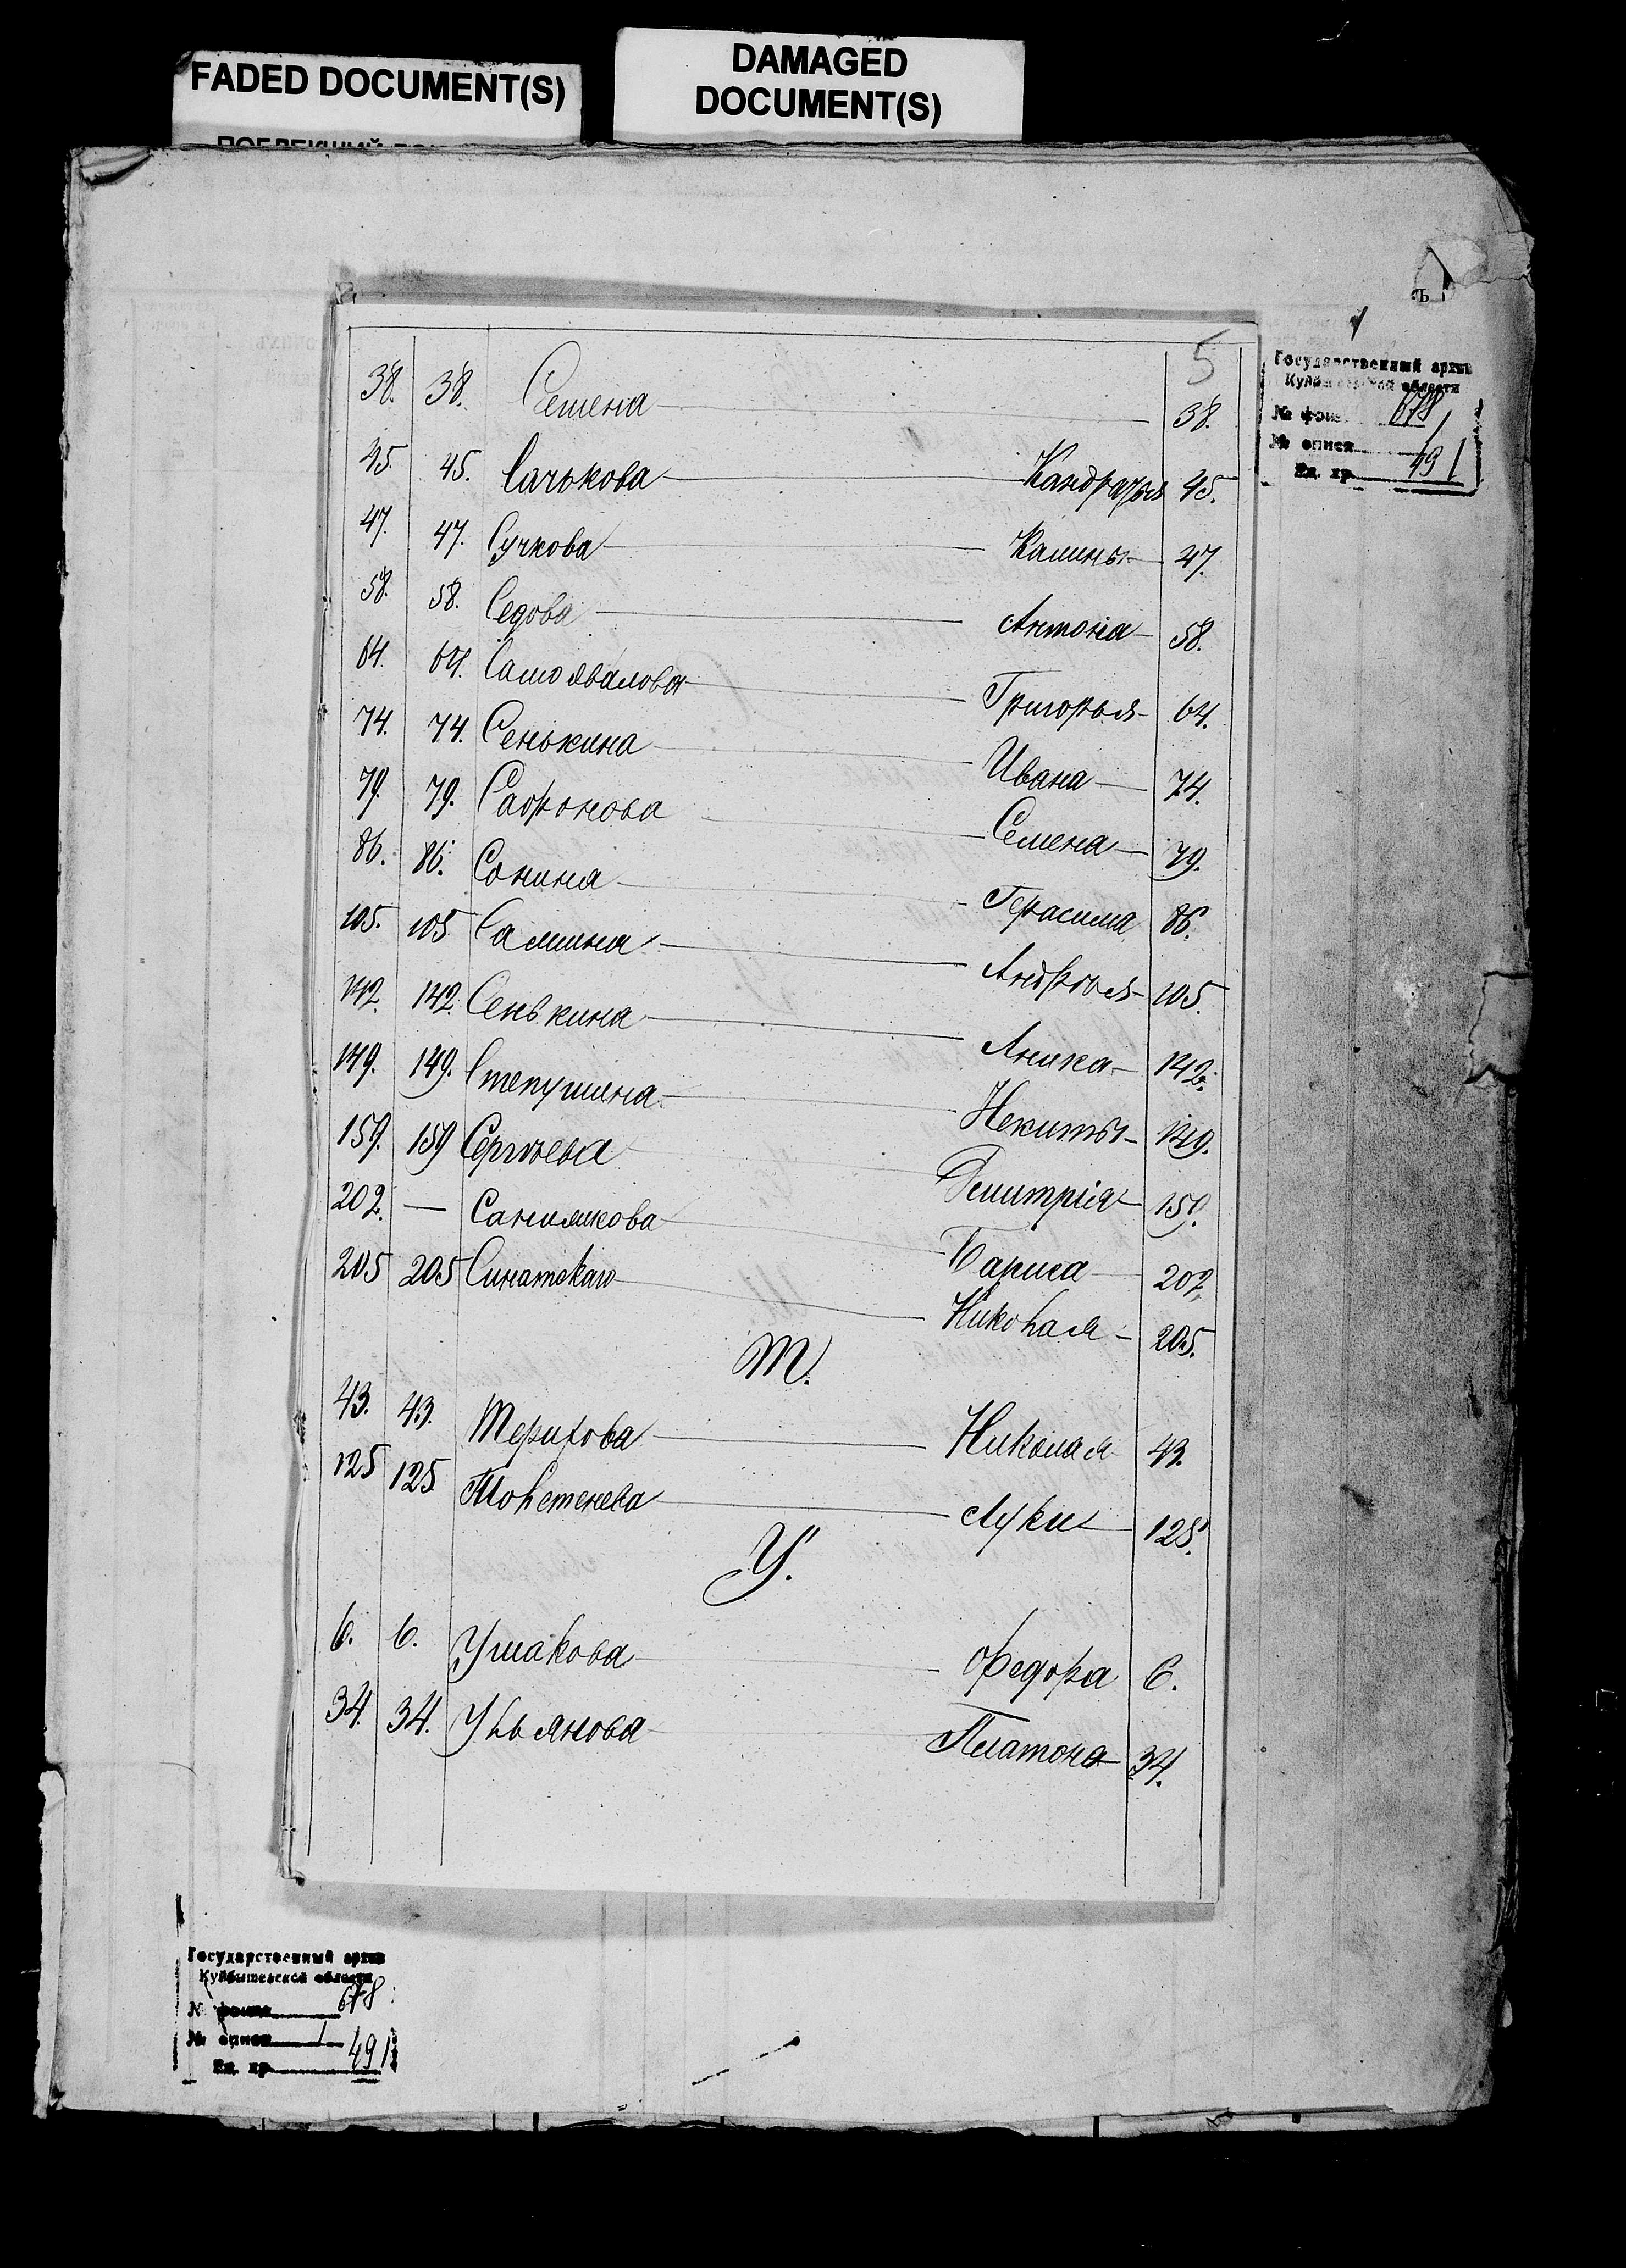 FADED DOCUMENT(S)
DAMAGED
DOCUMENT(S)
ъ
5
Государственный архив
Куйбышевской области
№ фон. 678
№ описи 1
Ед. хр. 491
38. 38. Семена 38.
45. 45. Сачькова Кандратья 45.
47. 47. Сучкова Калины 47.
58. 58. Седова Антона 58.
64. 64. Самойвалова Григорья 64.
74. 74. Сенькина Ивана 74.
79. 79. Сафронова Семена 79.
86. 86. Сонина Герасима 86.
105. 105 Самина Андрѣя 105.
142. 142. Сенькина Аника 142.
149. 149. Степушина Некиты 149.
159. 159 Сергѣева Дмитрія 159.
202. — Санимкова Бариса 202.
205 205 Синатскаго Николая 205.
Т.
43. 43. Терихова Николая 43.
125 125 Толстенева Луки 125.
У.
6. 6. Ушакова Федора 6.
34. 34. Ульянова Платона 34.
Государственный архив
Куйбышевской области
№ фонда 678
№ описи 1
Ед. хр. 491